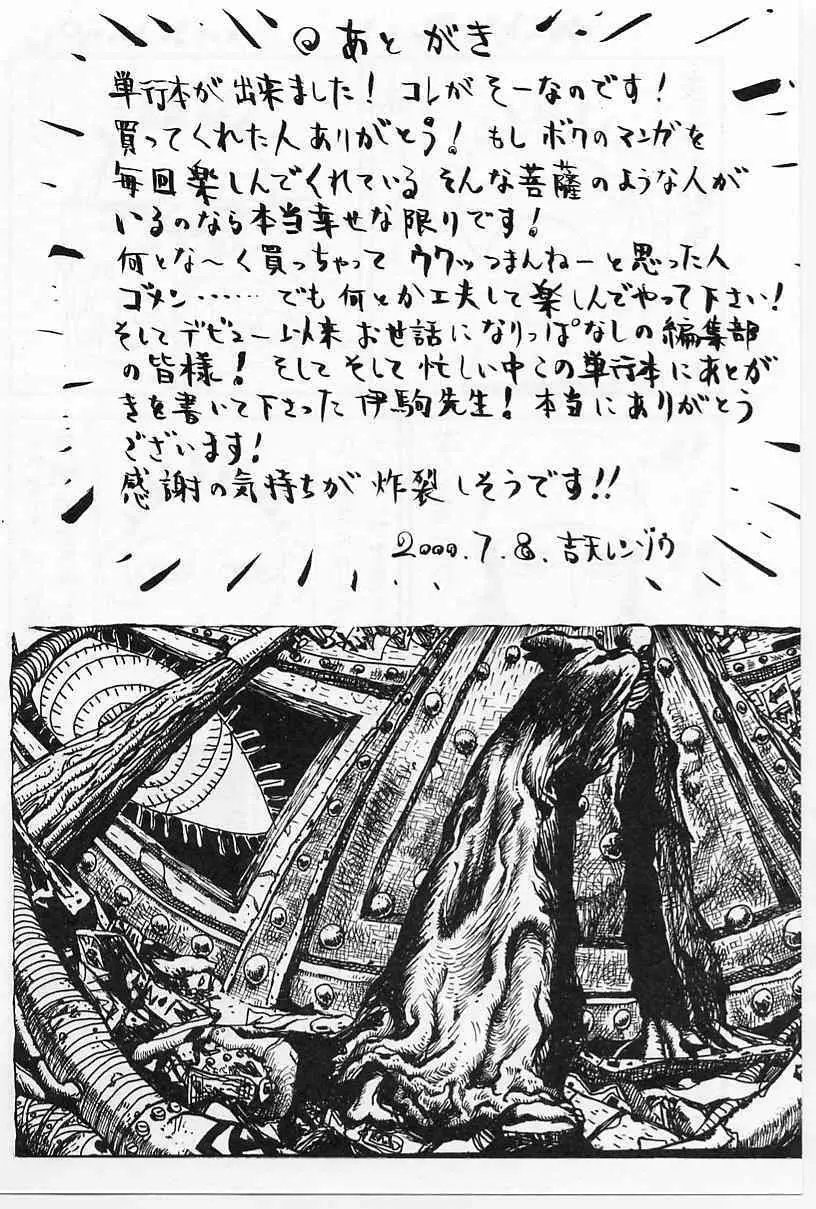 ◎あとがき
単行本が出来ました！コレがそーなのです！
買ってくれた人ありがとう！もしボクのマンガを
毎回楽しんでくれているそんな菩薩のような人が
いるのなら本当幸せな限りです！
何とな〜く買っちゃってウワッつまんねーと思った人
ゴメン……でも何とか工夫して楽しんでやって下さい！
そしてデビュー以来お世話になりっぱなしの編集部
の皆様！そしてそして忙しい中この単行本にあとが
きを書いて下さった伊駒先生！本当にありがとう
ございます！
感謝の気持ちが炸裂しそうです！！
2000.7.8.吉天レンゾウ